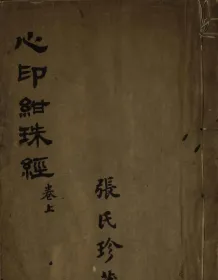 心印紺珠經
卷上
張氏珍